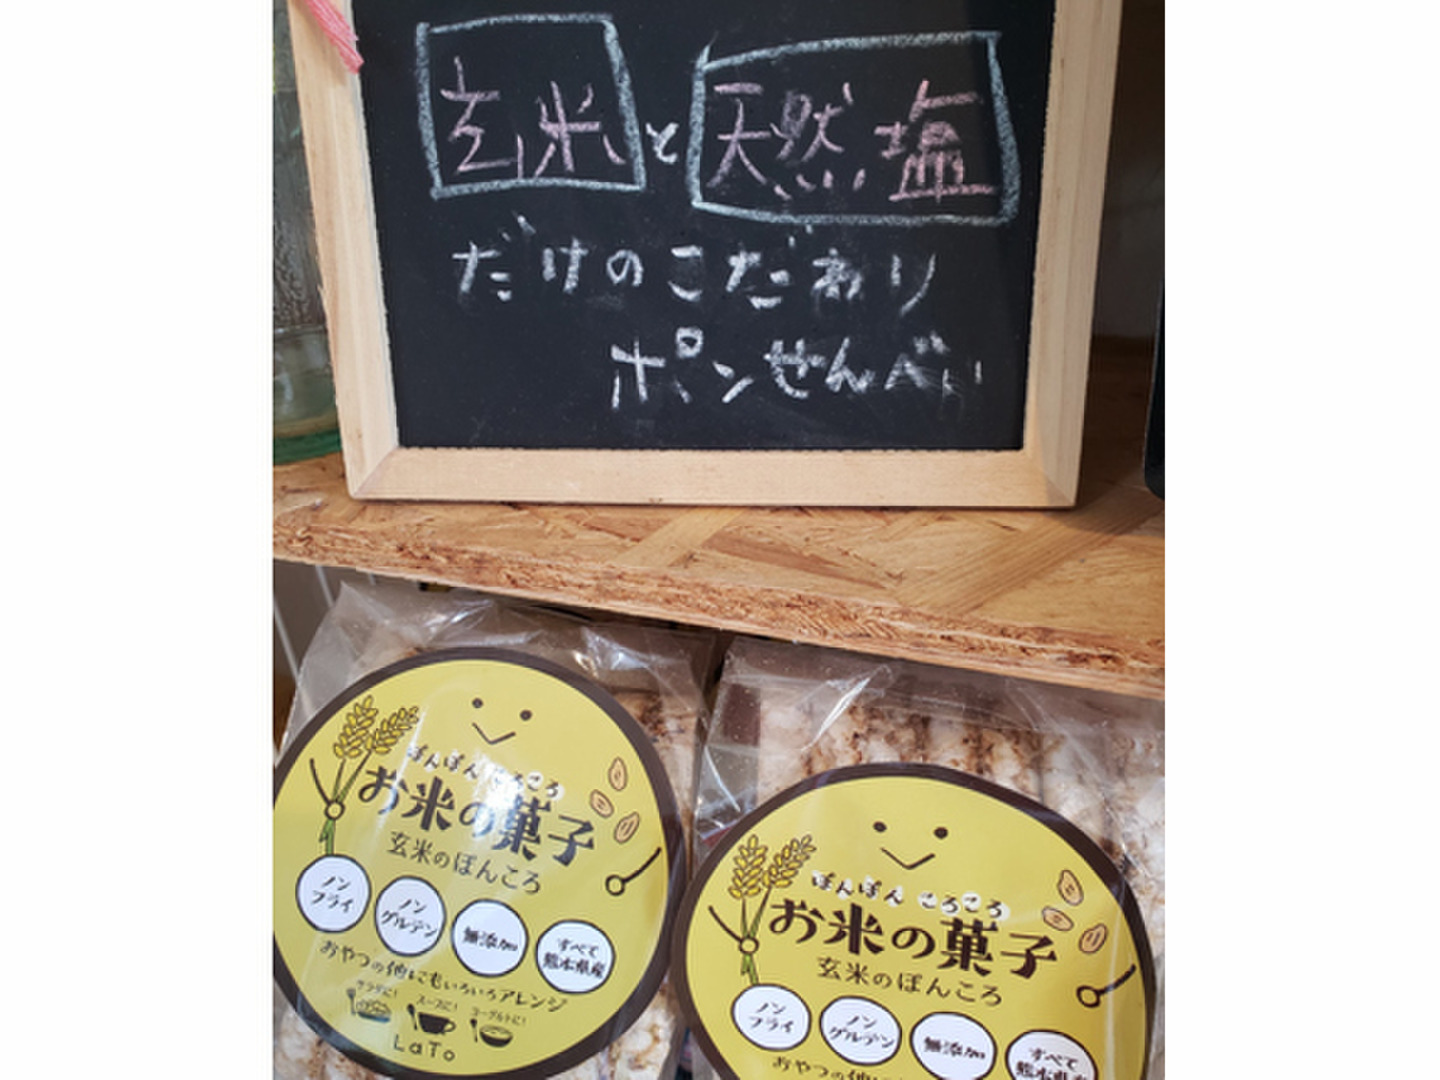 玄米と天然塩
だけのこだわり
ポンせんべい
ぽんぽん ころころ
お米の菓子
玄米のぽんころ
ノン
フライ
ノン
グルテン
無添加
すべて
熊本県産
おやつの他にもいろいろアレンジ
サラダに!
スープに!
ヨーグルトに!
LaTo
ぽんぽん ころころ
お米の菓子
玄米のぽんころ
ノン
フライ
ノン
グルテン
無添加
すべて
熊本県産
おやつの他にもいろ